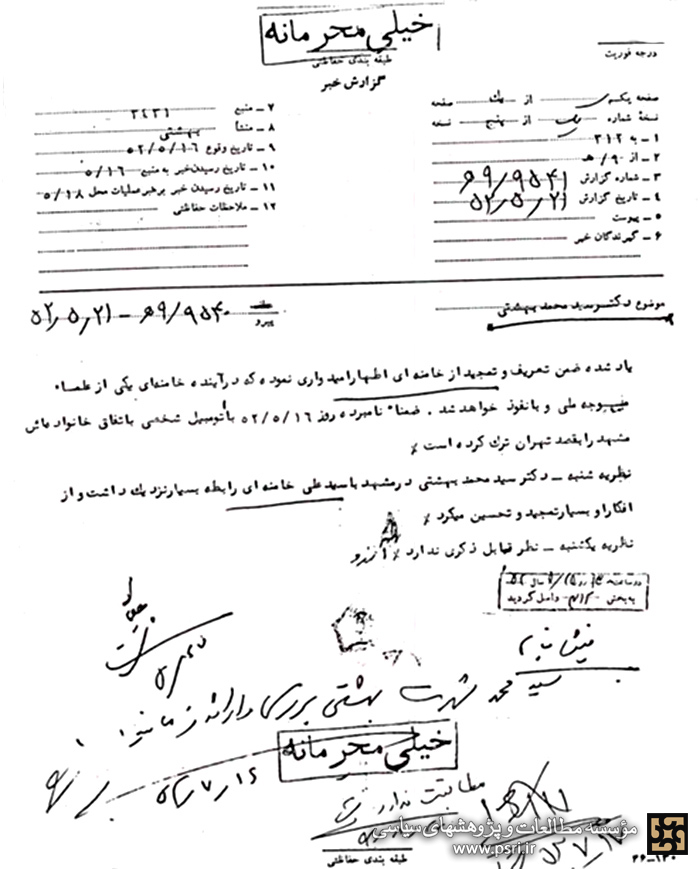 خیلی محرمانه
طبقه بندی حفاظتی
گزارش خبر
درجه فوریت
صفحه یک از یک صفحه
نسخهٔ شماره یک از پنج نسخه
۱ ـ به ۳۱۲
۲ ـ از ۹/ هـ
۳ ـ شماره گزارش ۹۵۴۱/ ۹ هـ
۴ ـ تاریخ گزارش ۵۲/۵/۲۱
۵ ـ پیوست
۶ ـ گیرندگان خبر
۷ ـ منبع ۳۴۳۱
۸ ـ منشأ بهشتی
۹ ـ تاریخ وقوع ۵۲/۵/۱۶
۱۰ ـ تاریخ رسیدن خبر به منبع ۵/۱۶
۱۱ ـ تاریخ رسیدن خبر برهبر عملیات محل ۵/۱۸
۱۲ ـ ملاحظات حفاظتی
موضوع دکتر سید محمد بهشتی
پیرو ۹۵۴۰/ ۹ هـ – ۵۲/۵/۲۱
یاد شده ضمن تعریف و تمجید از خامنه ای اظهار امیدواری نموده که در آینده خامنه‌ای یکی از علماء
وجیه ملی و بانفوذ خواهد شد . ضمنا" نامبرده روز ۵۲/۵/۱۶ با اتومبیل شخصی باتفاق خانواده‌اش
مشهد را بقصد تهران ترک کرده است ٪
نظریه شنبه ـ دکتر سید محمد بهشتی در مشهد با سید علی خامنه ای رابطه بسیار نزدیک داشت و از
افکار او بسیار تمجید و تحسین میکرد ٪
نظریه یکشنبه ـ نظر قابل ذکری ندارد ٪ آرزو
به بخش ۳۱۲ واصل گردید
سید محمد شهرت بهشتی بررسی و ارائه فرمائید
خیلی محرمانه
۵۲/۷/۱۶
طبقه بندی حفاظتی
۲۶-۱۳۰
مؤسسه مطالعات و پژوهشهای سیاسی
www.psri.ir